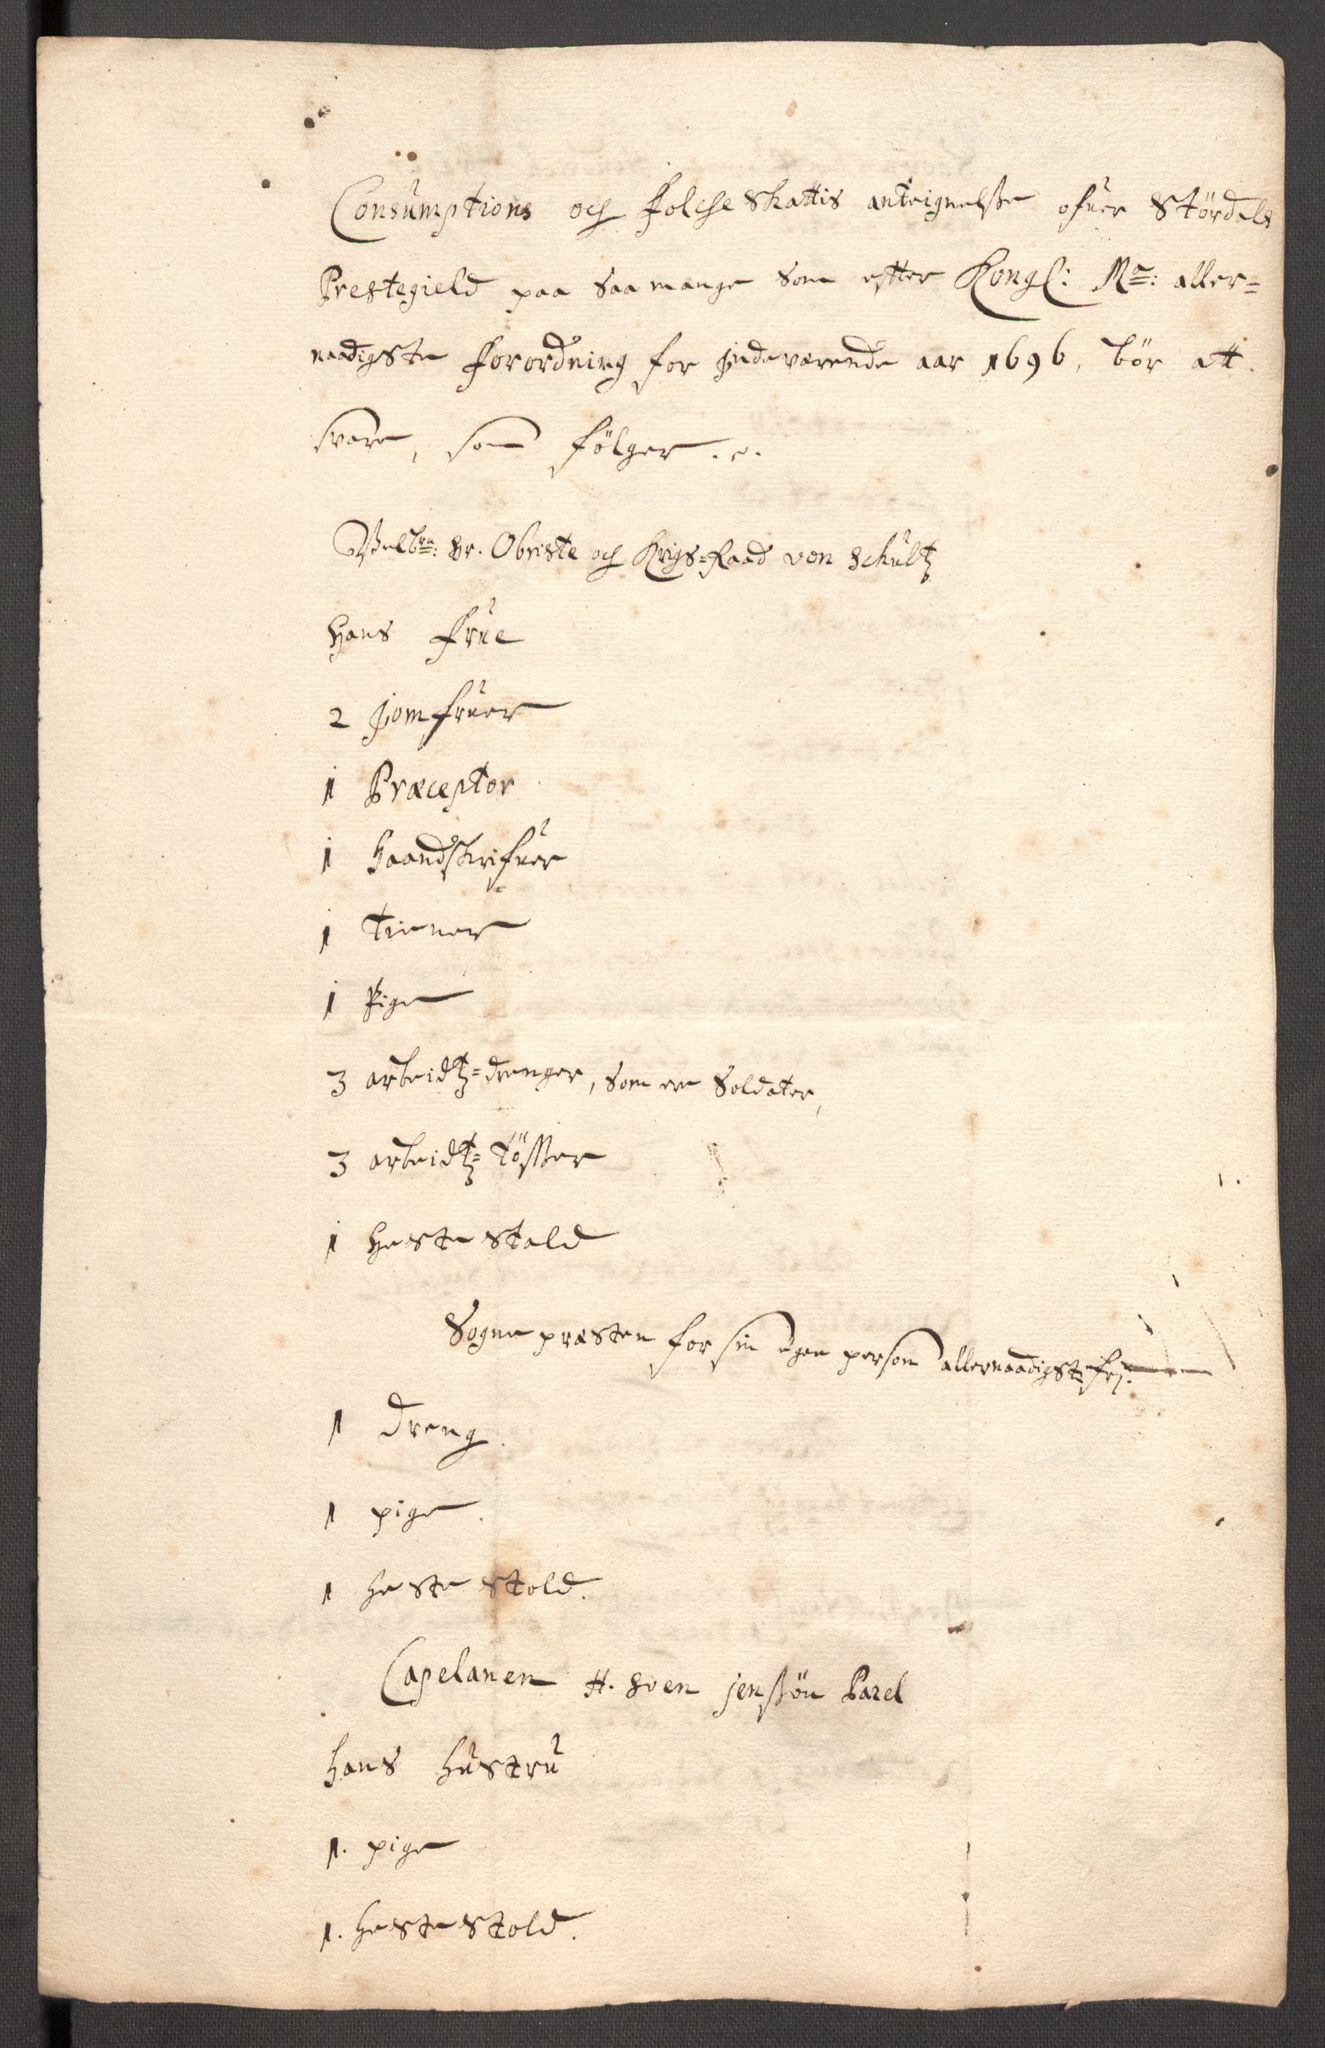 Consumptions och Folche Skattis anteignelsse ofuer Stördals
Prestegield paa saa mange som efter Kongl: Ma: aller=
naadigste Forordning for Indeværende aar 1696, bör att
svare, som fölger.
Velbrn: Hr. Obriste och Krigs=Raad von Schultz
Hans Frue
2 Jomfruer
1 Præceptor
1 Haandskrifuer
1 Tiener
1 Pige
3 arbeidtz=drenger, som er Soldater,
3 arbeidtz=Tösser
1 Heste stald
Sogne præsten for sin egen person allernaadigst frj.
1 Dreng.
1 pige.
1 heste stold.
Capelanen H. Sven Jenssön Parel
hans Hustru
1. pige
1. heste stold.